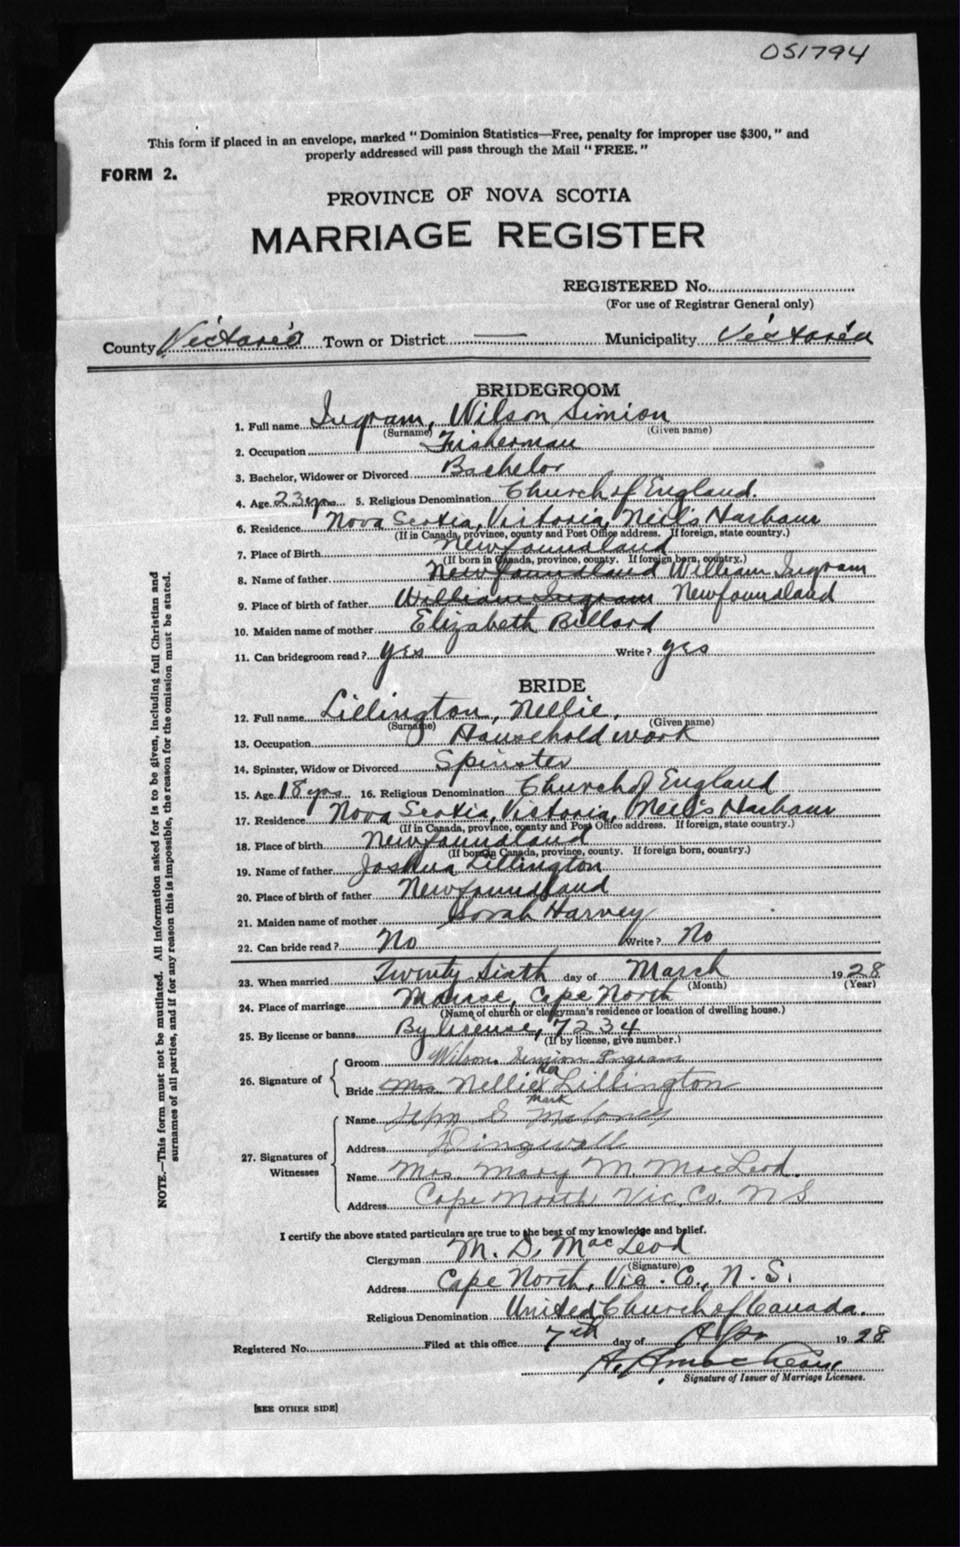 051794
This form if placed in an envelope, marked "Dominion Statistics—Free, penalty for improper use $300," and
properly addressed will pass through the Mail "FREE."
FORM 2.
PROVINCE OF NOVA SCOTIA
MARRIAGE REGISTER
REGISTERED No.
(For use of Registrar General only)
County Victoria Town or District — Municipality Victoria
BRIDEGROOM
1. Full name Ingram, Wilson Simion
(Surname) (Given name)
2. Occupation Fisherman
3. Bachelor, Widower or Divorced Bachelor
4. Age 23 yrs 5. Religious Denomination Church of England.
6. Residence Nova Scotia, Victoria, Neil's Harbour
(If in Canada, province, county and Post Office address. If foreign, state country.)
7. Place of Birth Newfoundland
(If born in Canada, province, county. If foreign born, country.)
8. Name of father Newfoundland William Ingram
9. Place of birth of father William Ingram Newfoundland
10. Maiden name of mother Elizabeth Billard
11. Can bridegroom read? yes Write? yes
BRIDE
12. Full name Lillington, Nellie,
(Surname) (Given name)
13. Occupation Household work
14. Spinster, Widow or Divorced Spinster
15. Age 18 yrs 16. Religious Denomination Church of England
17. Residence Nova Scotia, Victoria, Neil's Harbour
(If in Canada, province, county and Post Office address. If foreign, state country.)
18. Place of birth Newfoundland
(If born in Canada, province, county. If foreign born, country.)
19. Name of father Joshua Lillington
20. Place of birth of father Newfoundland
21. Maiden name of mother Sarah Harvey
22. Can bride read? No Write? No
23. When married Twenty Sixth day of March 1928
(Month) (Year)
24. Place of marriage Manse, Cape North
(Name of church or clergyman's residence or location of dwelling house.)
25. By license or banns By license, 7234
(If by license, give number.)
26. Signature of
Groom Wilson Simion Ingram
Her
Bride Mrs Nellie X Lillington
Mark
27. Signatures of Witnesses
Name S
Address Dingwall
Name Mrs. Mary M. MacLeod.
Address Cape North Vic. Co. N S
I certify the above stated particulars are true to the best of my knowledge and belief.
Clergyman M. D. MacLeod
(Signature)
Address Cape North, Vic. Co., N. S.
Religious Denomination United Church of Canada.
Registered No. Filed at this office 7th day of Apr 1928
Signature of Issuer of Marriage Licenses.
[SEE OTHER SIDE]
NOTE.—This form must not be mutilated. All information asked for is to be given, including full Christian and
surnames of all parties, and if for any reason this is impossible, the reason for the omission must be stated.